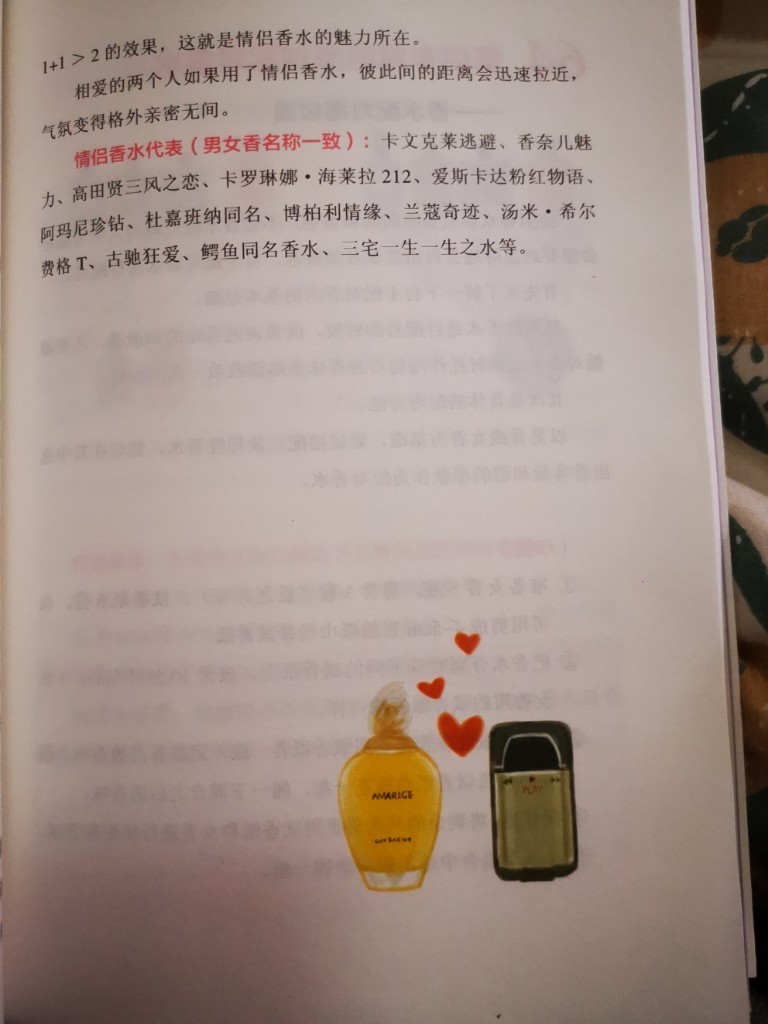 1+1＞2 的效果，这就是情侣香水的魅力所在。
相爱的两个人如果用了情侣香水，彼此间的距离会迅速拉近，
气氛变得格外亲密无间。
情侣香水代表（男女香名称一致）：卡文克莱逃避、香奈儿魅
力、高田贤三风之恋、卡罗琳娜·海莱拉 212、爱斯卡达粉红物语、
阿玛尼珍钻、杜嘉班纳同名、博柏利情缘、兰蔻奇迹、汤米·希尔
费格 T、古驰狂爱、鳄鱼同名香水、三宅一生一生之水等。
AMARIGE
PLAY